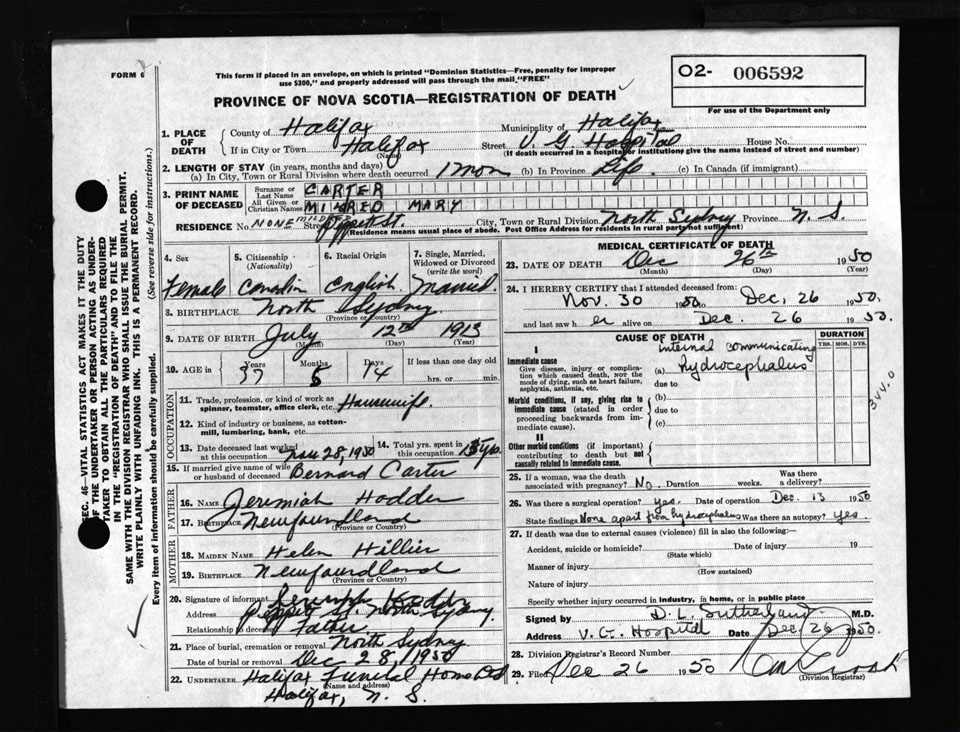 FORM 6
This form if placed in an envelope, on which is printed "Dominion Statistics—Free, penalty for improper
use $300," and properly addressed will pass through the mail "FREE"
O2- 006592
For use of the Department only
PROVINCE OF NOVA SCOTIA—REGISTRATION OF DEATH
1. PLACE OF DEATH
County of Halifax Municipality of Halifax
If in City or Town Halifax (Name) Street V. G Hospital House No.
(If death occurred in a hospital or institution, give the name instead of street and number)
2. LENGTH OF STAY (in years, months and days)
(a) In City, Town or Rural Division where death occurred 1 mon (b) In Province Life. (c) In Canada (if immigrant)
3. PRINT NAME OF DECEASED
Surname or Last Name CARTER
All Given or Christian Names MILRED MARY
RESIDENCE No. NONE Street Peppett St. City, Town or Rural Division North Sydney Province N. S.
(Residence means usual place of abode. Post Office Address for residents in rural parts not sufficient)
4. Sex
Female
5. Citizenship (Nationality)
Canadian
6. Racial Origin
English
7. Single, Married, Widowed or Divorced (write the word)
Married.
8. BIRTHPLACE North Sydney
(Province or Country)
9. DATE OF BIRTH July 12th 1913
(Month) (Day) (Year)
10. AGE in Years 37 Months 5 Days 14 If less than one day old
hrs. or min.
OCCUPATION
11. Trade, profession or kind of work as
spinner, teamster, office clerk, etc. Housewife.
12. Kind of industry or business, as cotton-
mill, lumbering, bank, etc.
13. Date deceased last worked Nov 28, 1950
14. Total yrs. spent in
15. If married give name of wife
or husband of deceased Bernard Carter
FATHER
16. Name Jeremiah Hodder
17. Birthplace Newfoundland
(Province or Country)
MOTHER
18. MAIDEN NAME Helen Hillier
19. BIRTHPLACE Newfoundland
(Province or Country)
20. Signature of informant Jeremiah Hodder
Address Peppett St. North Sydney
Relationship to deceased Father
21. Place of burial, cremation or removal North Sydney
Date of burial or removal Dec 28, 1950
22. UNDERTAKER Halifax Funeral Home
(Name and address)
Halifax, N. S.
MEDICAL CERTIFICATE OF DEATH
23. DATE OF DEATH Dec 26th 1950
(Month) (Day) (Year)
24. I HEREBY CERTIFY that I attended deceased from:
Nov. 30 1950 to Dec. 26 1950.
and last saw her alive on Dec. 26 1950.
CAUSE OF DEATH
DURATION
YRS. MOS. DYS.
I
Immediate cause
Give disease, injury or complica-
tion which caused death, not the
mode of dying, such as heart failure,
asphyxia, asthenia, etc.
internal communicating
(a) hydrocephalus
due to
344.0
Morbid conditions, if any, giving rise to
immediate cause (stated in order
proceeding backwards from im-
mediate cause).
(b)
due to
(c)
II
Other morbid conditions (if important)
contributing to death but not
causally related to immediate cause.
25. If a woman, was the death
associated with pregnancy? No. Duration weeks. Was there a delivery?
26. Was there a surgical operation? yes. Date of operation Dec. 13 1950
State findings None apart from hydrocephalus Was there an autopsy? yes.
27. If death was due to external causes (violence) fill in also the following:—
Accident, suicide or homicide? Date of injury 19
(State which)
Manner of injury
(How sustained)
Nature of injury
Specify whether injury occurred in industry, in home, or in public place
Signed by D. L. Sutherland M.D.
Address V. G. Hospital Date Dec 26 1950.
28. Division Registrar's Record Number
29. Filed Dec 26 1950
(Division Registrar)
SEC. 46—VITAL STATISTICS ACT MAKES IT THE DUTY
OF THE UNDERTAKER OR PERSON ACTING AS UNDER-
TAKER TO OBTAIN ALL THE PARTICULARS REQUIRED
IN THE "REGISTRATION OF DEATH" AND TO FILE THE
SAME WITH THE DIVISION REGISTRAR WHO SHALL ISSUE THE BURIAL PERMIT.
WRITE PLAINLY WITH UNFADING INK. THIS IS A PERMANENT RECORD.
Every item of information should be carefully supplied. (See reverse side for instructions.)